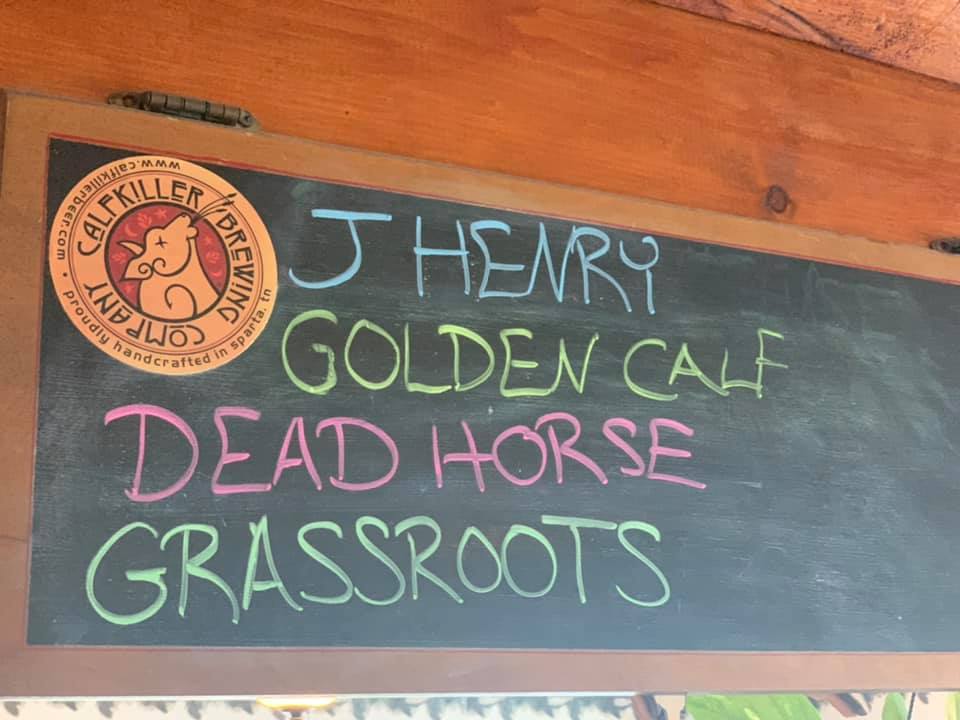 CALFKILLER BREWING COMPANY
www.calfkillerbeer.com • proudly handcrafted in sparta, tn
J HENRY
GOLDEN CALF
DEAD HORSE
GRASSROOTS